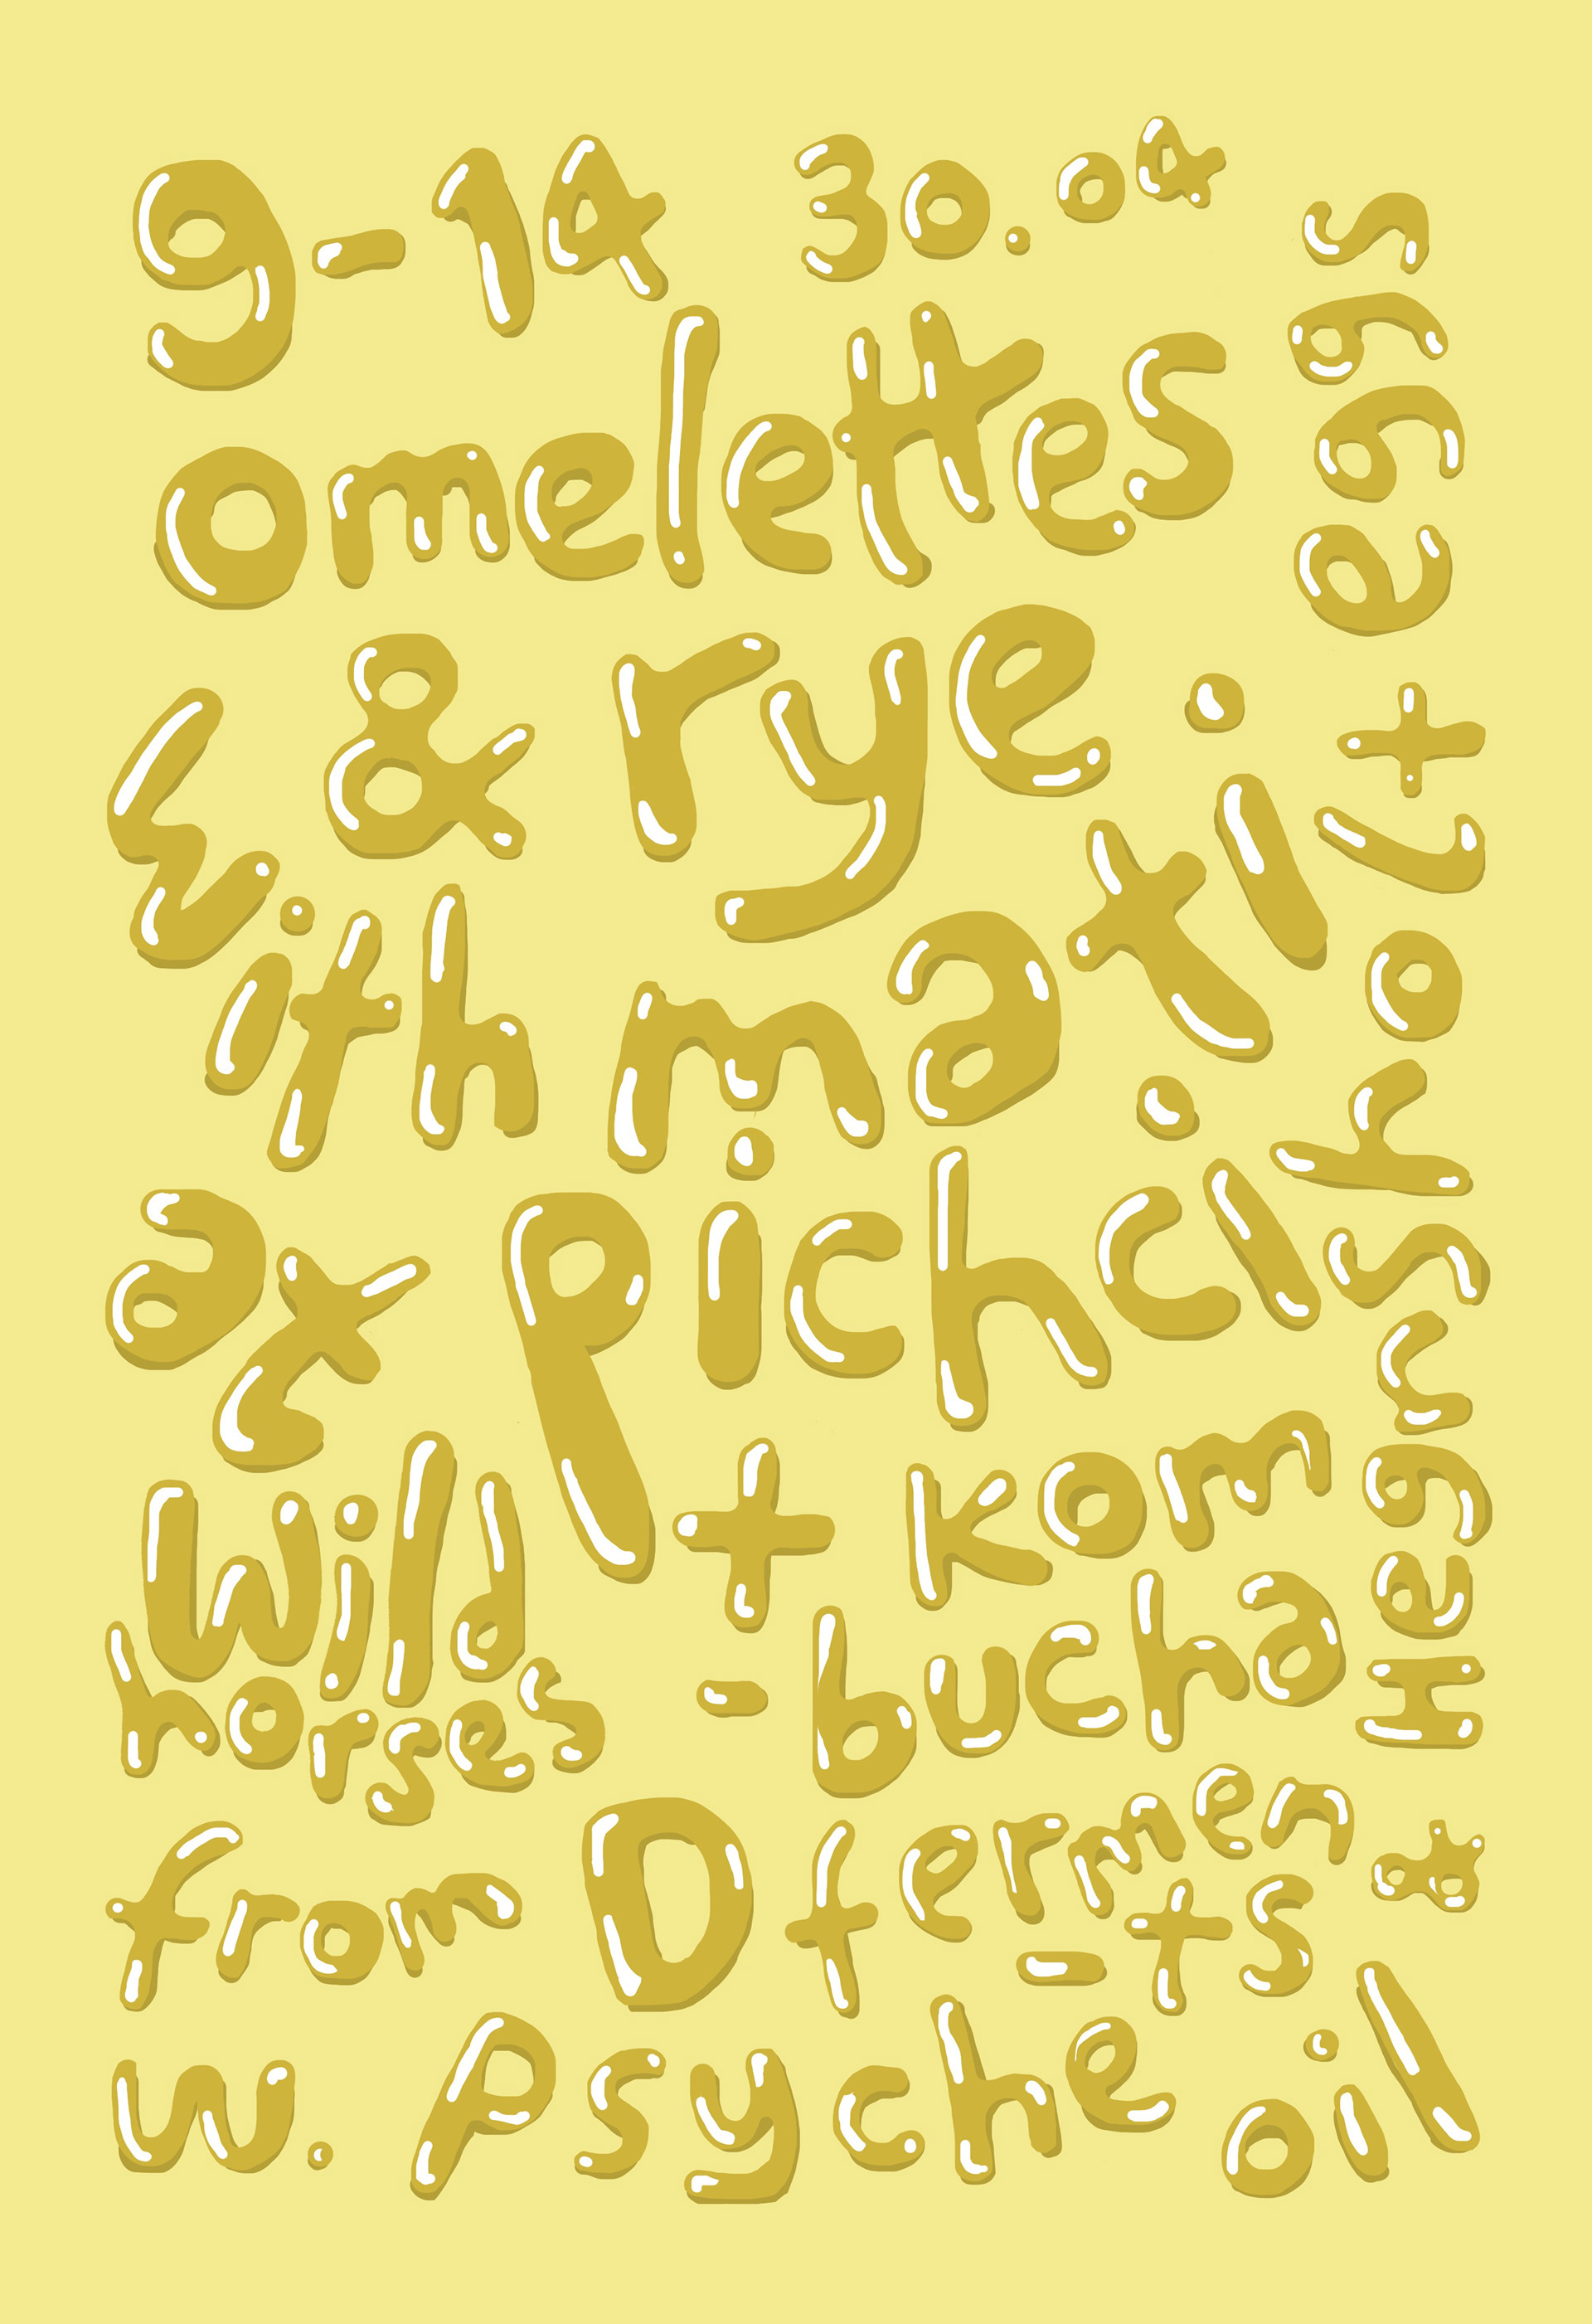 9-14 30.04
omelettes
& rye
with mati
a x pichci
wild + kom
horses - bucha
from D fermen
-ts
w. Psyche oil
+ eggs